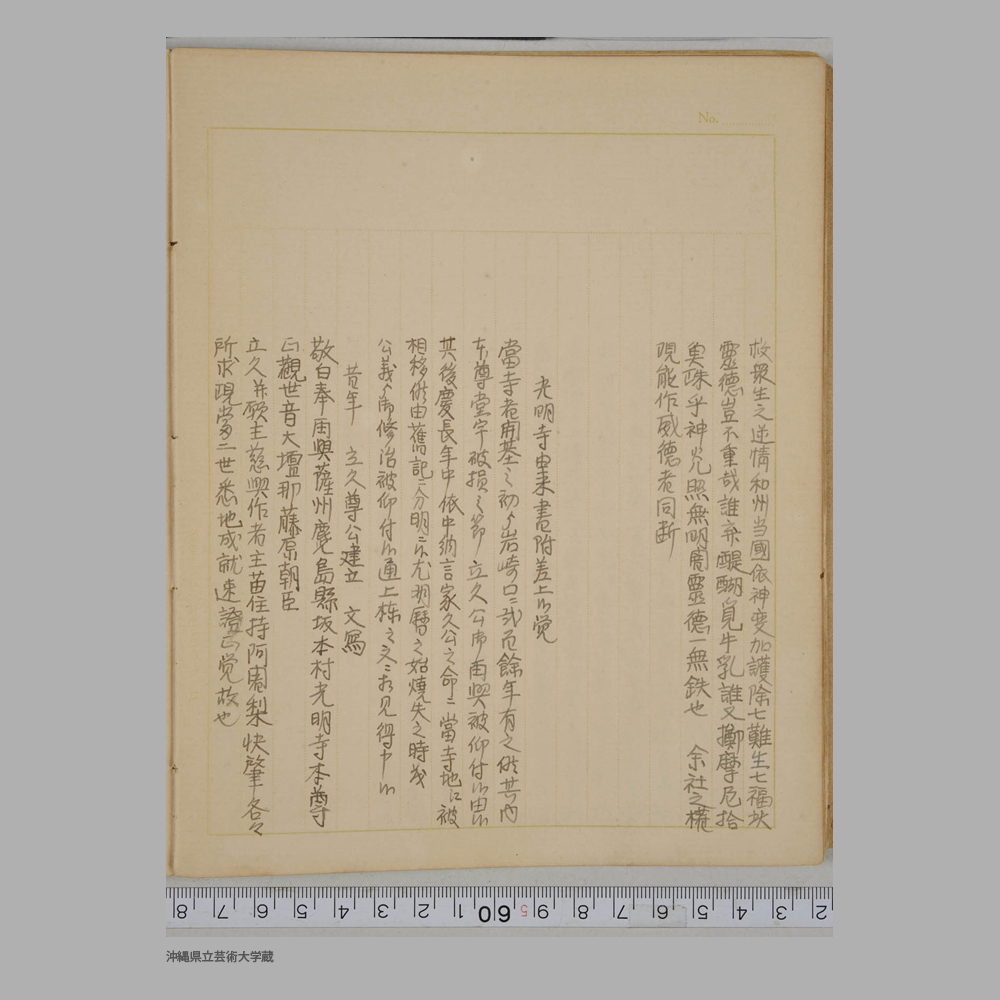 No.
救衆生之逆情和州当國依神変加護除七難生七福状
靈德豈不重哉誰弃醍醐覓牛乳誰又擲摩尼拾
魚珠乎神光照無明闇靈德一無鉄也　余社之権
現能作威德者同断
光明寺由来書附差上候覚
當寺者開基之初ゟ岩崎口ニ弐百余年有之候其内
本尊堂宇破損之節　立久公御再興被仰付候由候
其後慶長年中依中納言家久公之命ニ當寺地江被
相移候由舊記ニ分明ニ候尤明暦之始焼失之時茂
公義ゟ御修治被仰付候通上棟之文ニ相見得申候
昔年　立久尊公建立　文寫
敬白奉再興薩州鹿島縣坂本村光明寺本尊
正觀世音大壇那藤原朝臣
立久并願主慈興作者主苗住持阿闍梨快肇各々
所求現當二世悉地成就速證正覚故也
8 7 6 5 4 3 2 1 60 5 9 8 7 6 5 4 3 2
沖縄県立芸術大学蔵